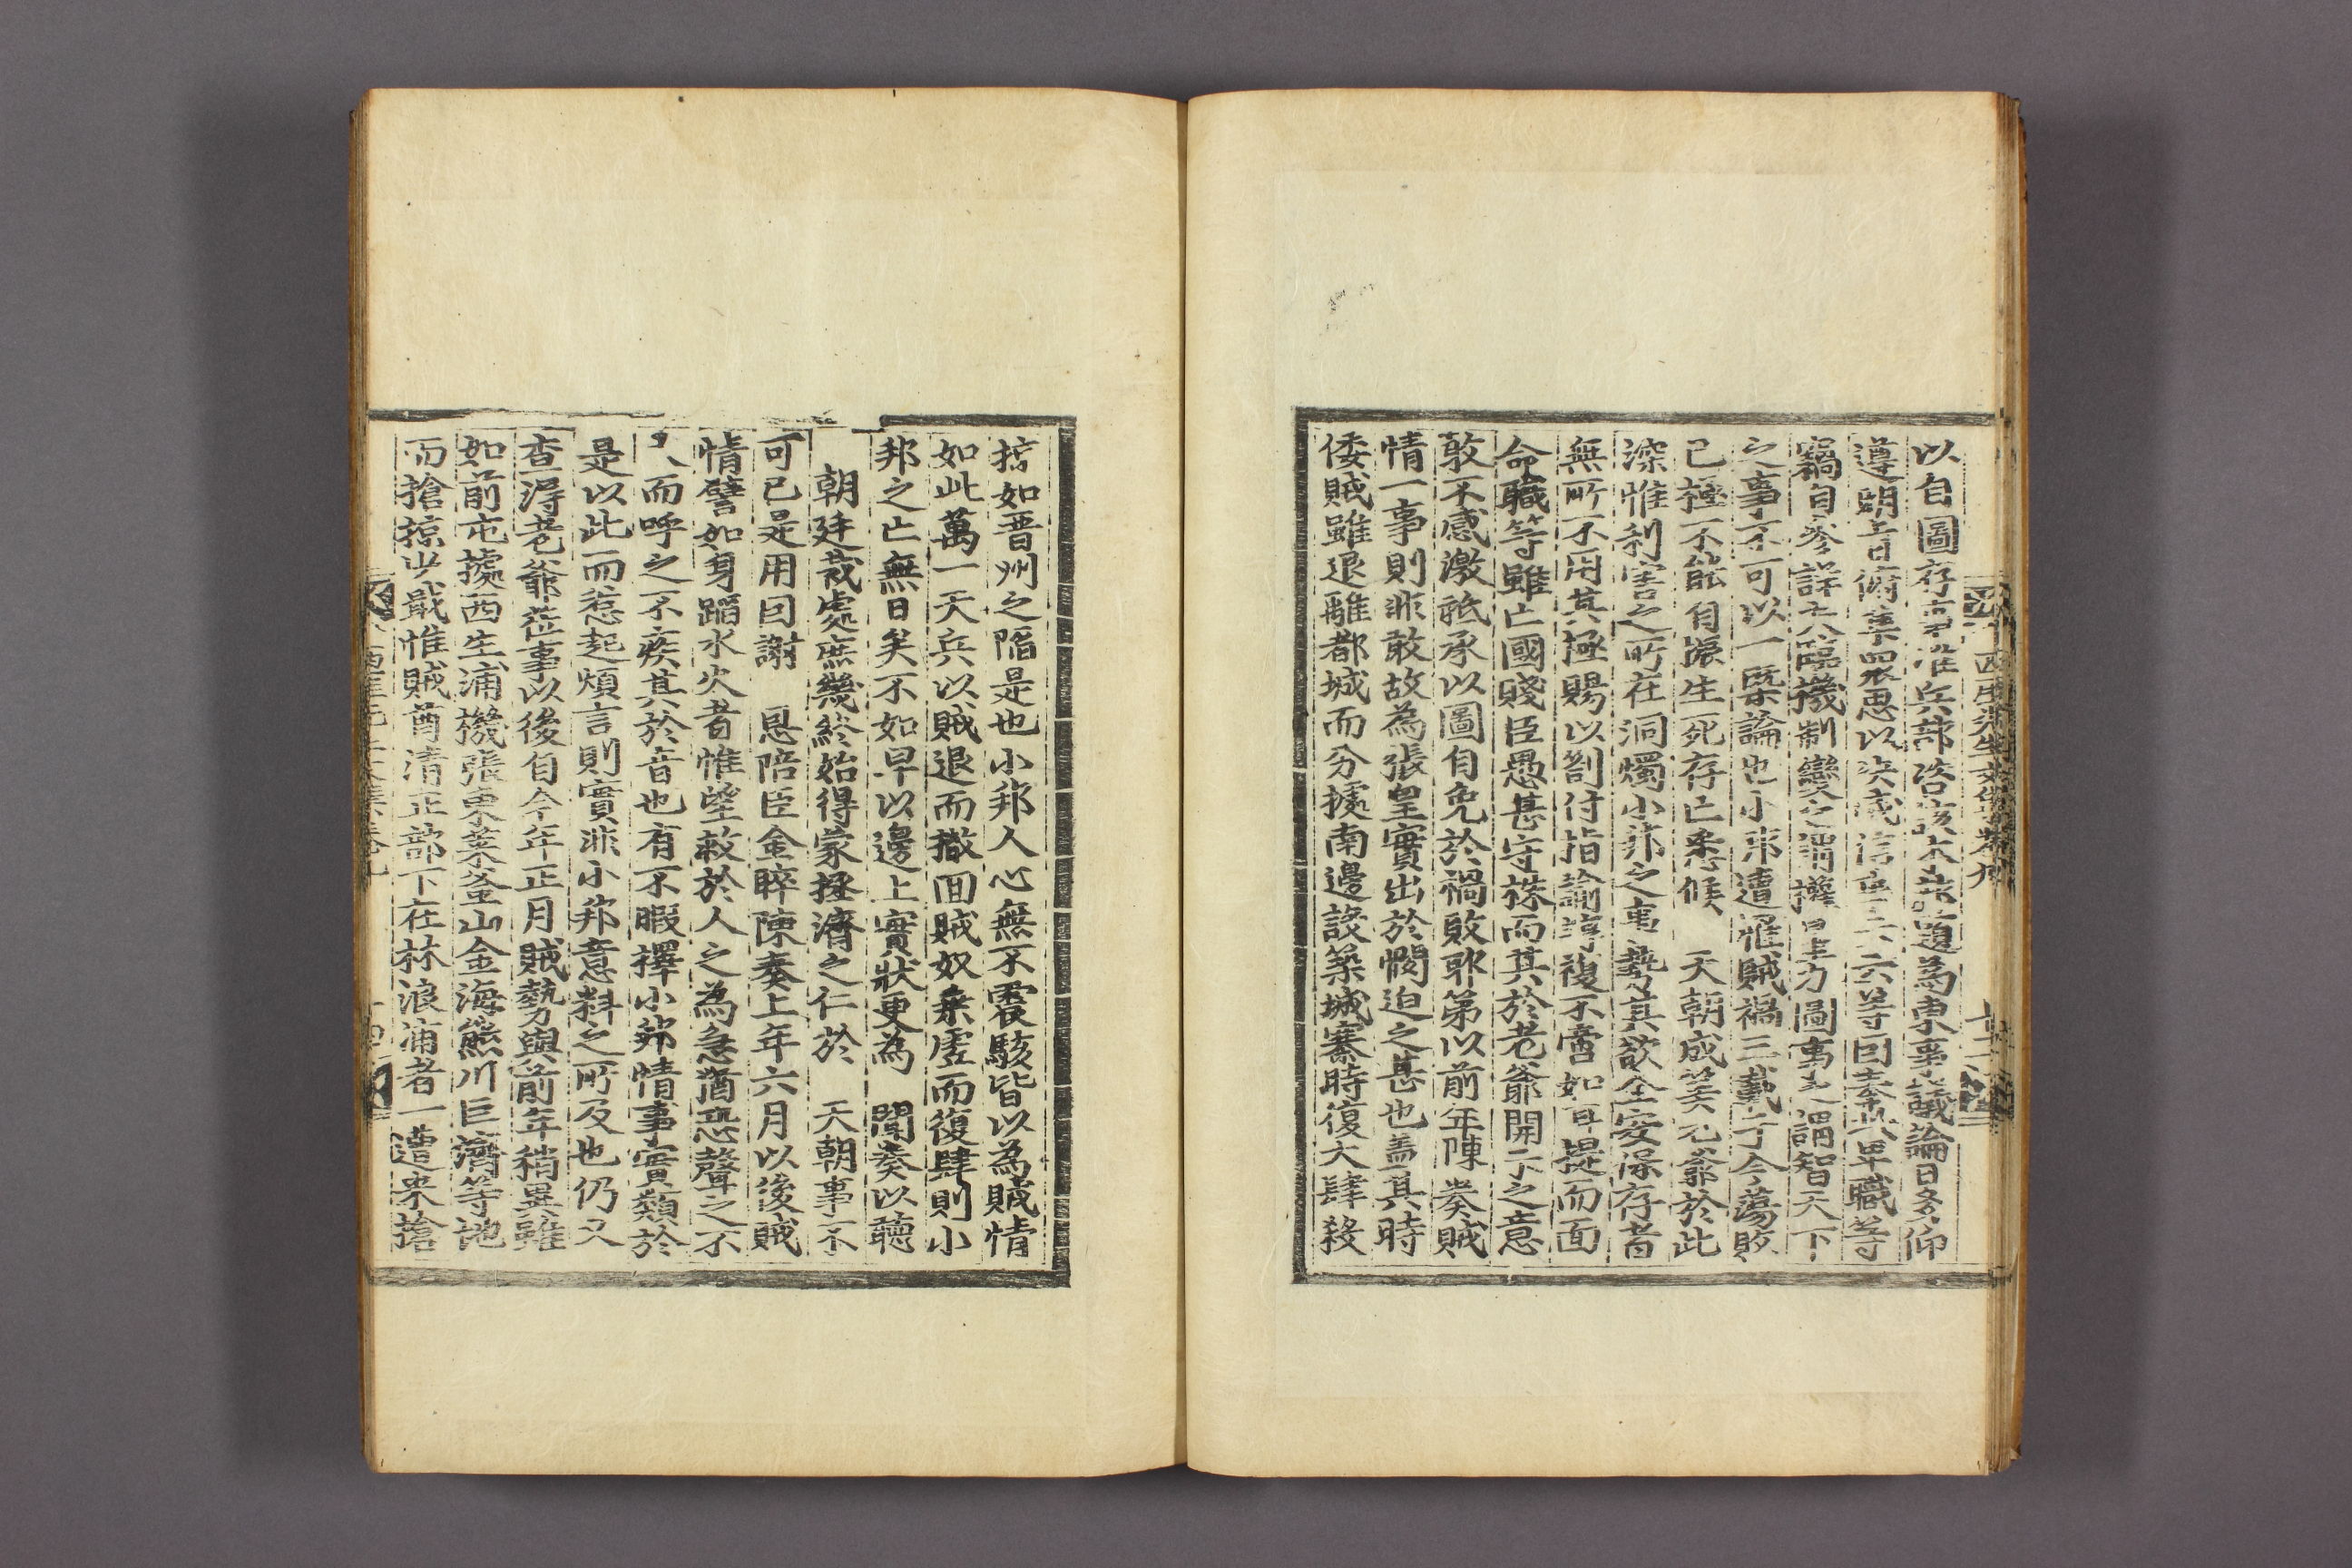 以自圖存事准兵部咨該本部題為東事議論日多仰
遵明旨俯集眾思以決成信事云云等因奉此卑職等
竊自參詳夫臨機制變之謂權量力圖事之謂智天下
之事不可以一槩論也小邦遭罹賊禍三載于今蕩敗
已極不能自振生死存亡悉候　天朝成筭老爺於此
深惟利害之所在洞燭小邦之事勢其欲全安保存者
無所不用其極賜以劄付指諭諄複不啻如耳提而面
命職等雖亡國賤臣愚甚守株而其於老爺開示之意
敢不感激祗承以圖自免於禍敗耶第以前年陳奏賊
情一事則非敢故為張皇實出於憫迫之甚也盖其時
倭賊雖退離都城而分據南邊設築城寨時復大肆殺
掠如晋州之陷是也小邦人心無不震駭皆以為賊情
如此萬一天兵以賊退而撤回賊奴乘虛而復肆則小
邦之亡無日矣不如早以邊上實狀更為　聞奏以聽
朝廷裁處庶幾終始得蒙拯濟之仁於　天朝事不
可已是用因謝　恩陪臣金睟陳奏上年六月以後賊
情譬如身蹈水火者惟望救於人之為急猶恐聲之不
大而呼之不疾其於音也有不暇擇小邦情事實類於
是以此而惹起煩言則實非小邦意料之所及也仍又
查得老爺莅事以後自今年正月賊勢與前年稍異雖
如前屯據西生浦機張東萊釜山金海熊川巨濟等地
而搶掠少戢惟賊酋清正部下在林浪浦者一遭來搶